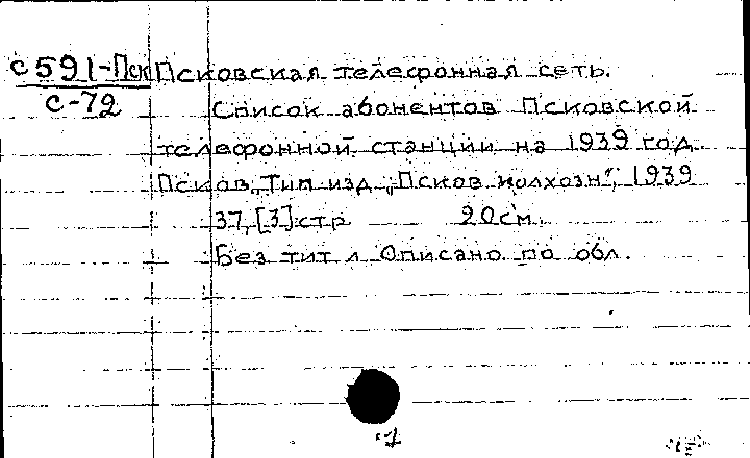 с591-Пск Псковская телефонная сеть.
с-72 Список абонентов Псковской
телефонной станции на 1939 год.
Псков, Тип. изд. „Псков. колхозн", 1939
37, [3] стр 20см.
Без тит л Описано по обл.